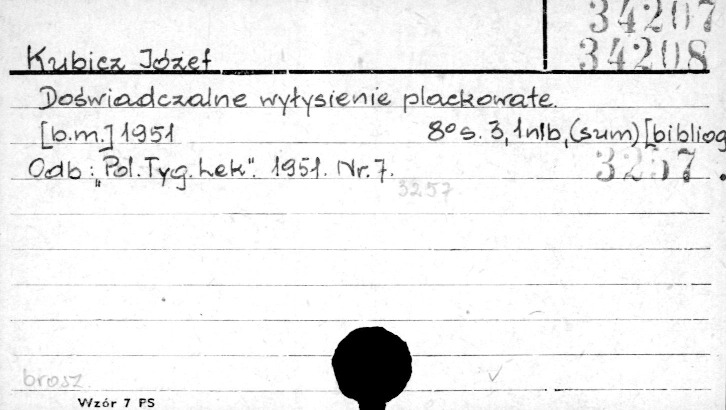 34207
Kubicz Józef 34208
Doświadczalne wyłysienie plackowate.
[b.m.] 1951 8° s. 3, 1nlb, (sum) [bibliog
Odb: „Pol. Tyg. Lek". 1951. Nr. 7. 3257.
3257
brosz
Wzór 7 PS